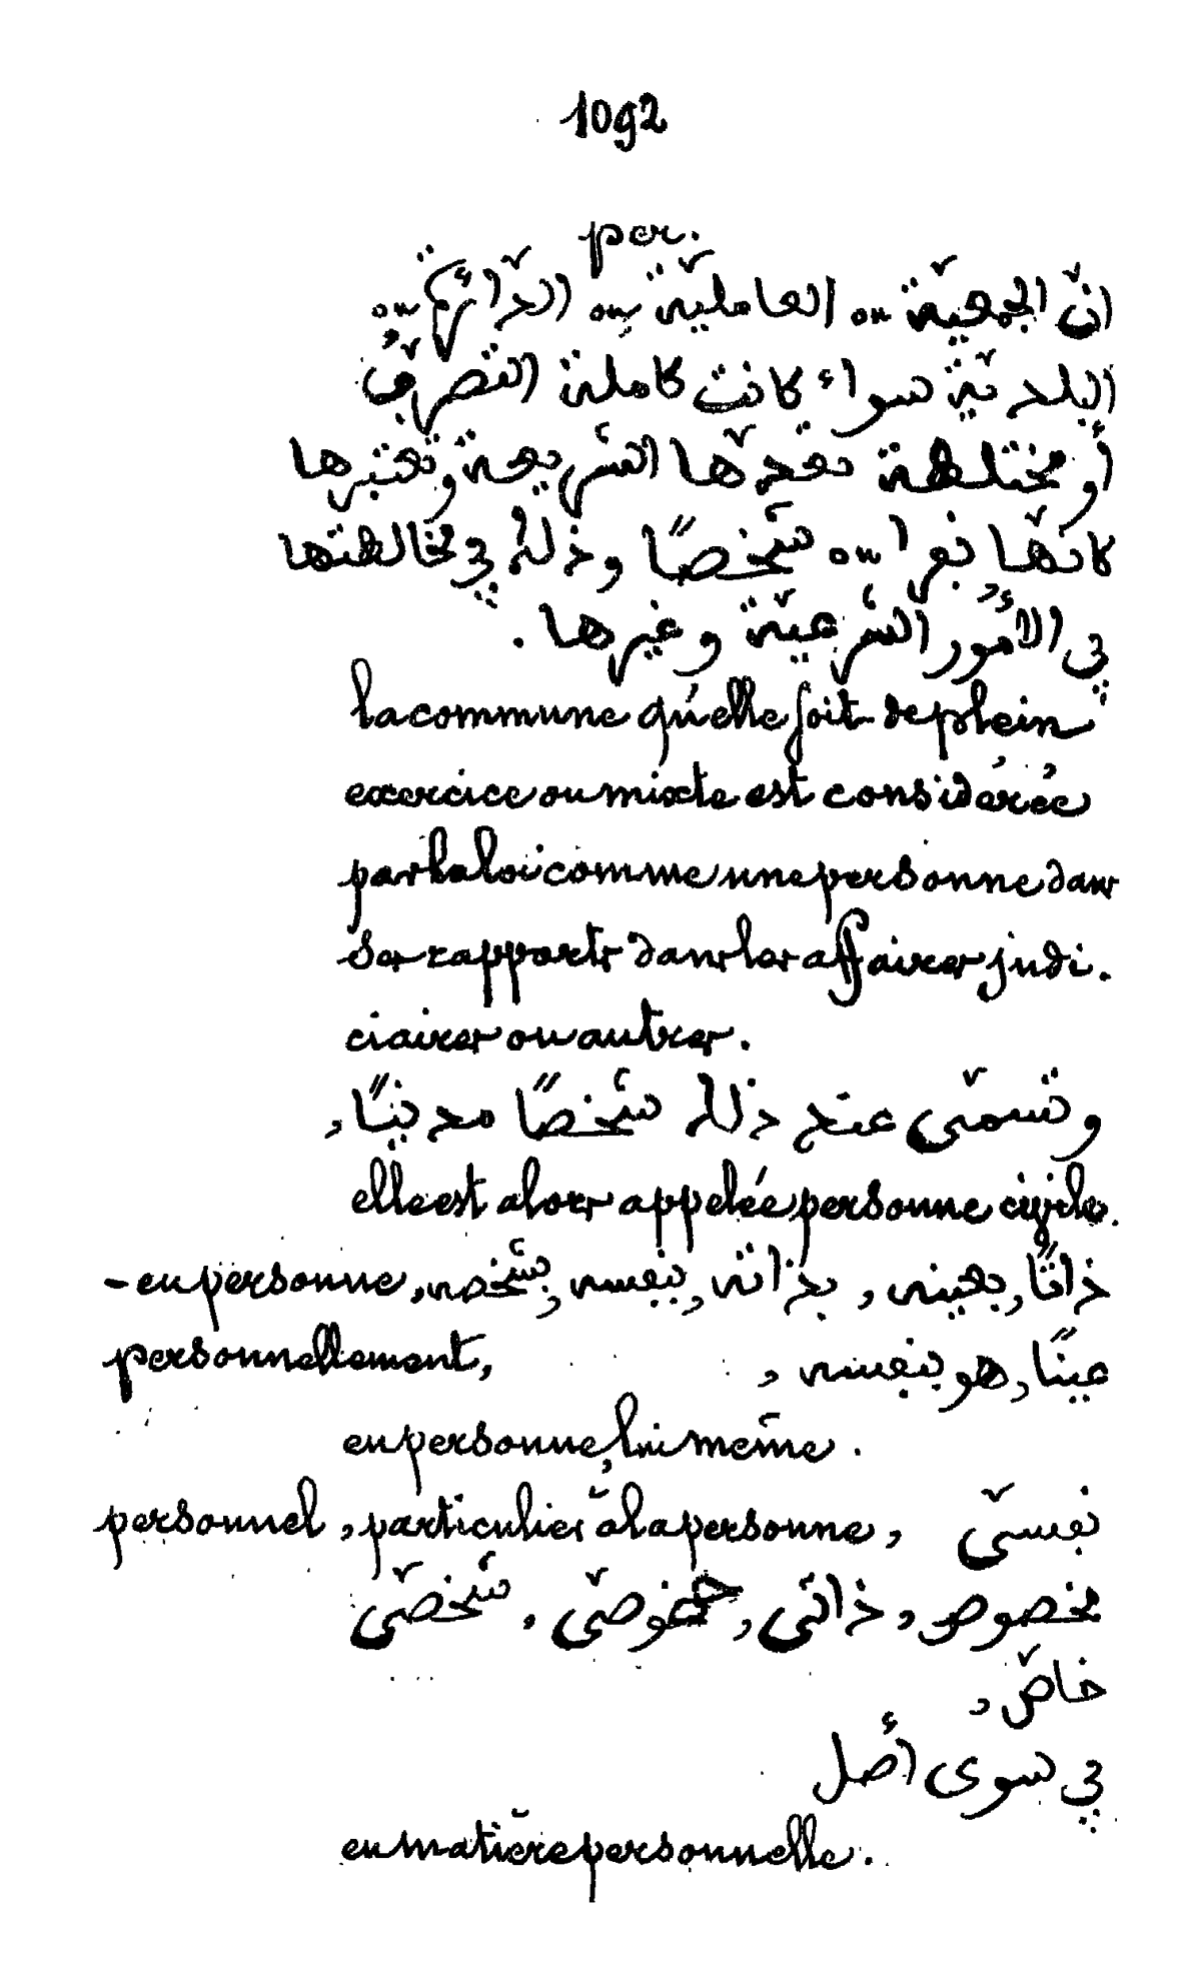 1092
per.
انّ الجمعيّة ou العامليّة ou الدّائرة ou
البلديّة سواء كانت كاملة التصرّفُ
أو مختلطة تعدّها الشريعة وتعتبرها
كانّها نفرا ou شخصًا وذلك في مخالطتها
في الأمُور الشرعيّة وغيرها .
la commune qu'elle soit de plein
exercice ou mixte est considérée
par la loi comme une personne dans
ses rapports dans les affaires judi.
ciaires ou autres.
وتسمّى عند ذلك شخصًا مدنيًّا,
elle est alors appelée personne civile.
– en personne, ذاتًا, بعينه, بذاته, بنفسه, بشخصه
personnellement, عينًا, هو بنفسه,
en personne, lui même .
personnel, particulier à la personne, نفسيّ
مخصوص, ذاتي, خصوصيّ, شخصيّ
خاصّ,
في سوى أصل
en matière personnelle.